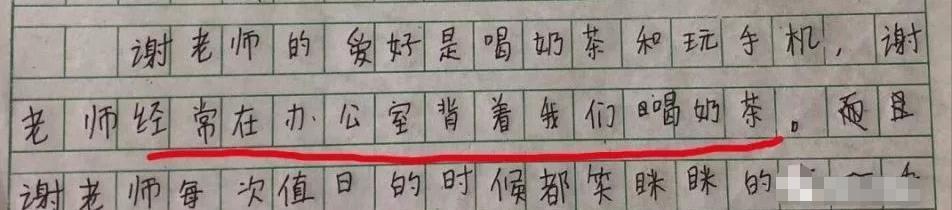 谢老师的爱好是喝奶茶和玩手机，谢
老师经常在办公室背着我们喝奶茶。而且
谢老师每次值日的时候都笑眯眯的